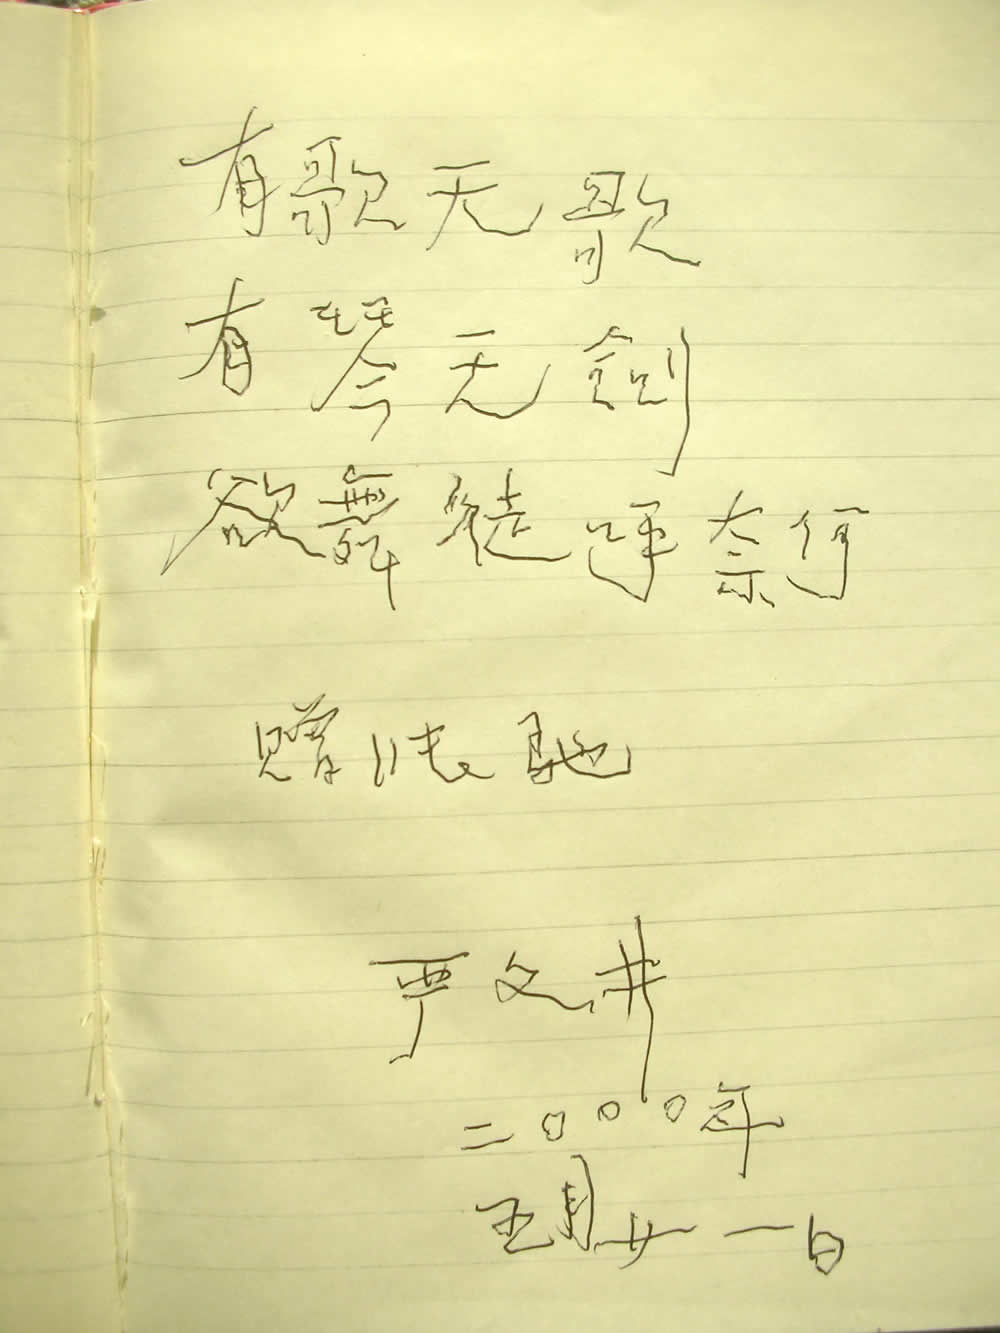 有歌无歌
有琴无剑
欲舞徒呼奈何
赠张驰
严文井
二〇〇〇年
五月廿一日